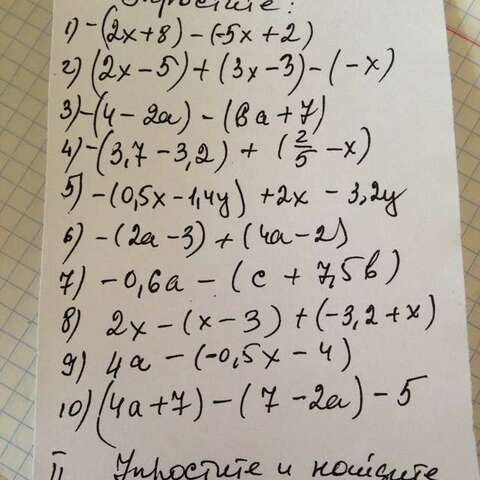 Упростите:
1) -(2x+8) - (-5x+2)
2) (2x-5) + (3x-3) - (-x)
3) -(4-2a) - (8a+7)
4) -(3,7-3,2) + (2/5 -x)
5) -(0,5x-1,4y) +2x - 3,2y
6) -(2a-3) + (4a-2)
7) -0,6a - (c + 7,5b)
8) 2x - (x-3) + (-3,2+x)
9) 4a - (-0,5x - 4)
10) (4a+7) - (7-2a) - 5
II Упростите и найдите